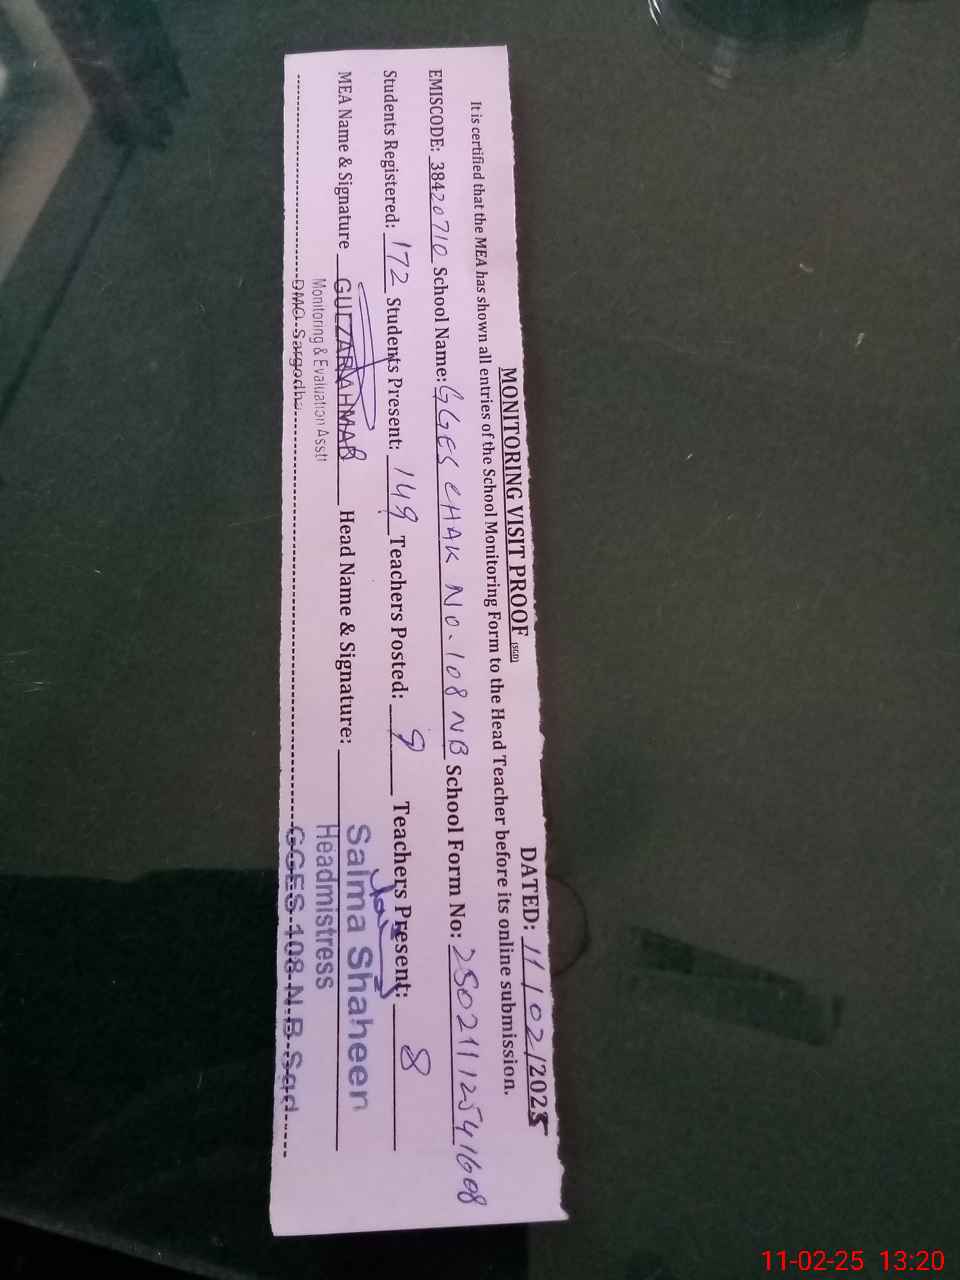 MONITORING VISIT PROOF (SGD) DATED: 11/02/2025
It is certified that the MEA has shown all entries of the School Monitoring Form to the Head Teacher before its online submission.
EMISCODE: 38420710 School Name: GGES CHAK NO. 108 NB School Form No: 25021112541608
Students Registered: 172 Students Present: 149 Teachers Posted: 9 Teachers Present: 8
MEA Name & Signature GULZAR AHMAD Head Name & Signature: Salma Shaheen
Monitoring & Evaluation Asstt Headmistress
DMO Sargodha GGES 108 N.B Sgd
11-02-25 13:20